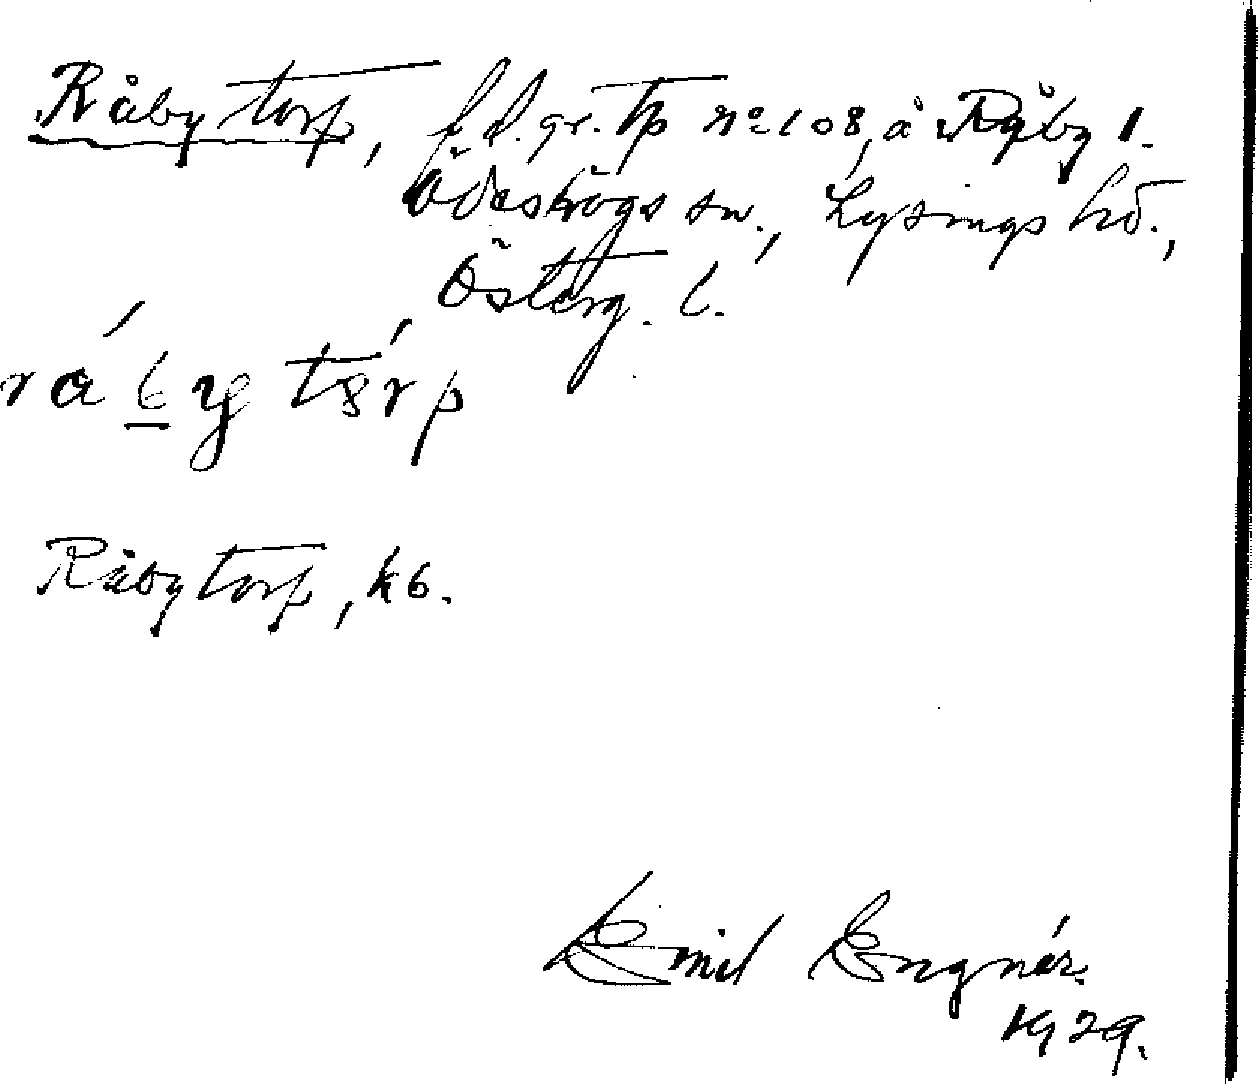 Råbytorp, f.d. gr. tp No 108, å Råby 1.
Ödeshögs sn., Lysings hd.,
Österg. l.
Råbytorp, kb.
Emil Engnér.
1929.